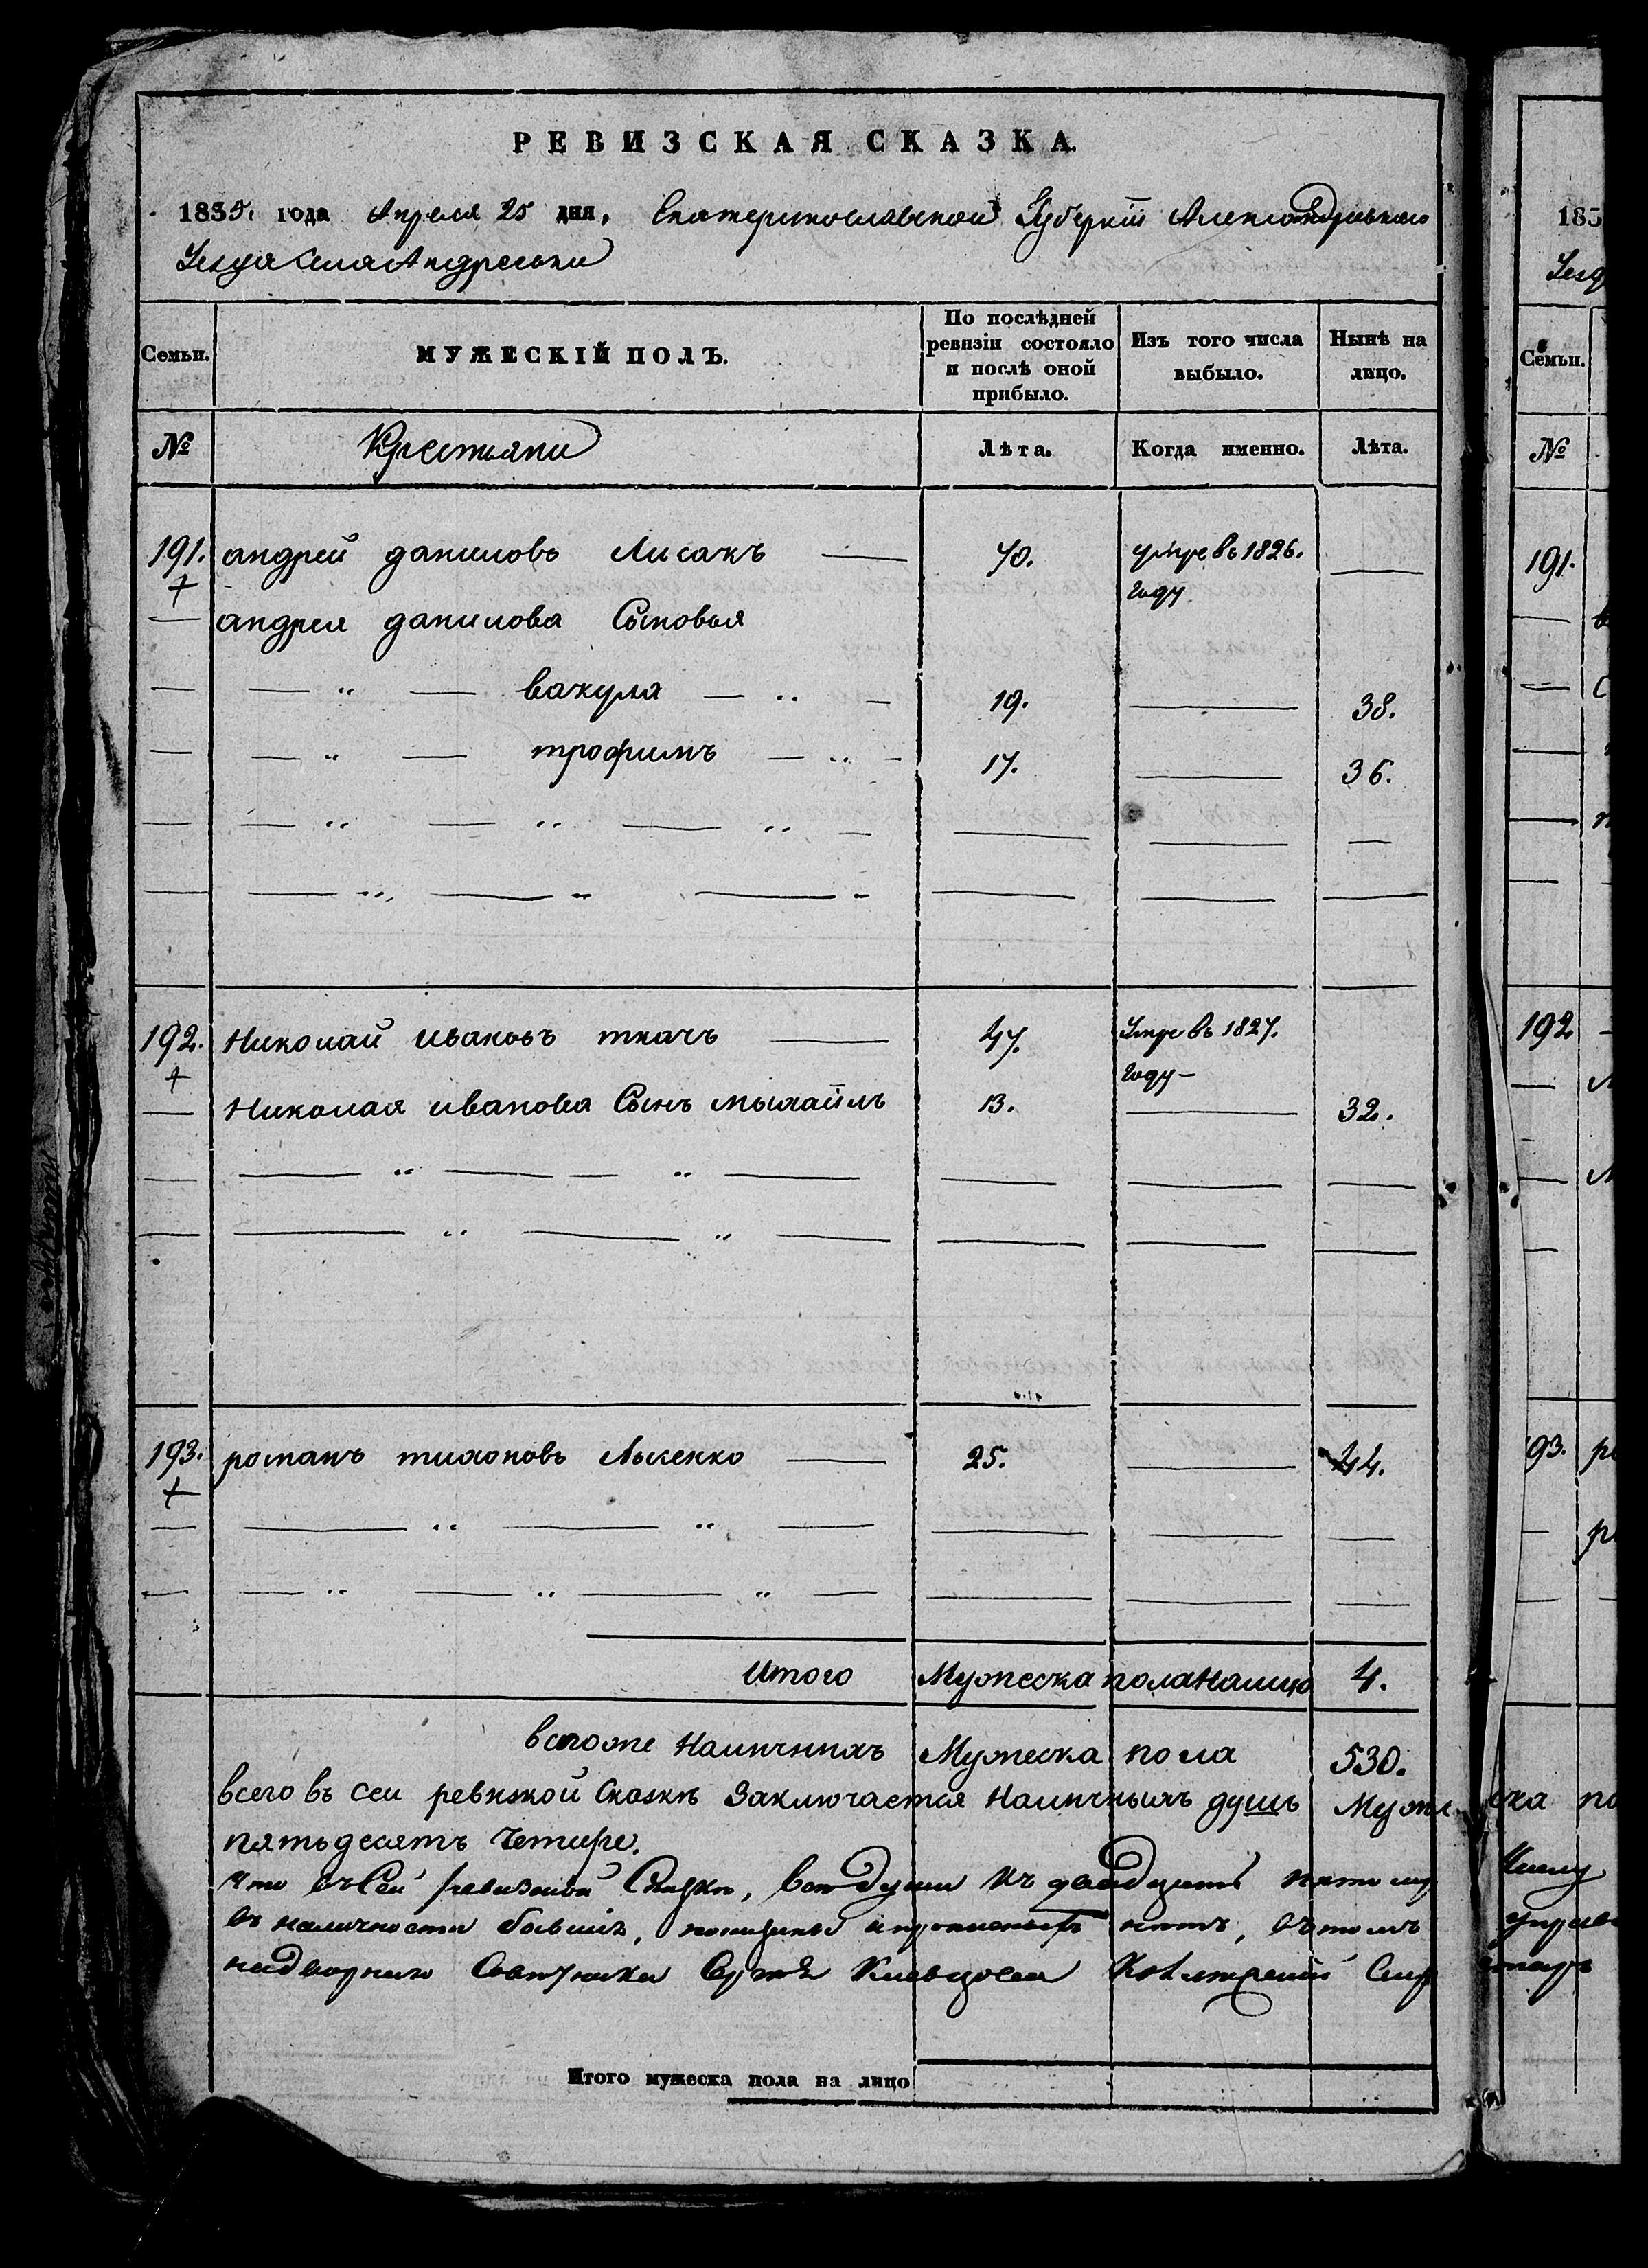 РЕВИЗСКАЯ СКАЗКА.
1835. года Апреля 25 дня, Екатеринославской Губернiи Александрвскаго
Уезда Села Андреевки
Семьи. МУЖЕСКІЙ ПОЛЪ. По послѣдней ревизіи состояло и послѣ оной прибыло. Изъ того числа выбыло. Нынѣ на лицо.
№ Крестьяни Лѣта. Когда именно. Лѣта.
191. андрей даниловъ Лисакъ 70. умре въ 1826.
году
андрея данилова Сыновья
вакула 19. 38.
трофимъ 17. 36.
192. Николай ивановъ ткачъ 47. Умре въ 1827.
году
Николая иванова Сынъ мыхайлъ 13. 32.
193. романъ тихоновъ Лысенко 25. 44.
Итого Мужеска пола Налицо 4.
всегоже Наличныхъ Мужеска пола 530.
всего въ сеи ревизкой Сказкѣ Заключается Наличныхъ душъ Муже
пятьдесятъ Четире.
что въ Сей ревизской Сказки, все души къ двадцать пятому
въ наличности бывшiе, показаны и прописныхъ нетъ, въ томъ
надворнаго Советника
Итого мужеска пола на лицо
183
Уезд
Семьи.
№
191.
192
93. ро
ро
ска по
Числу